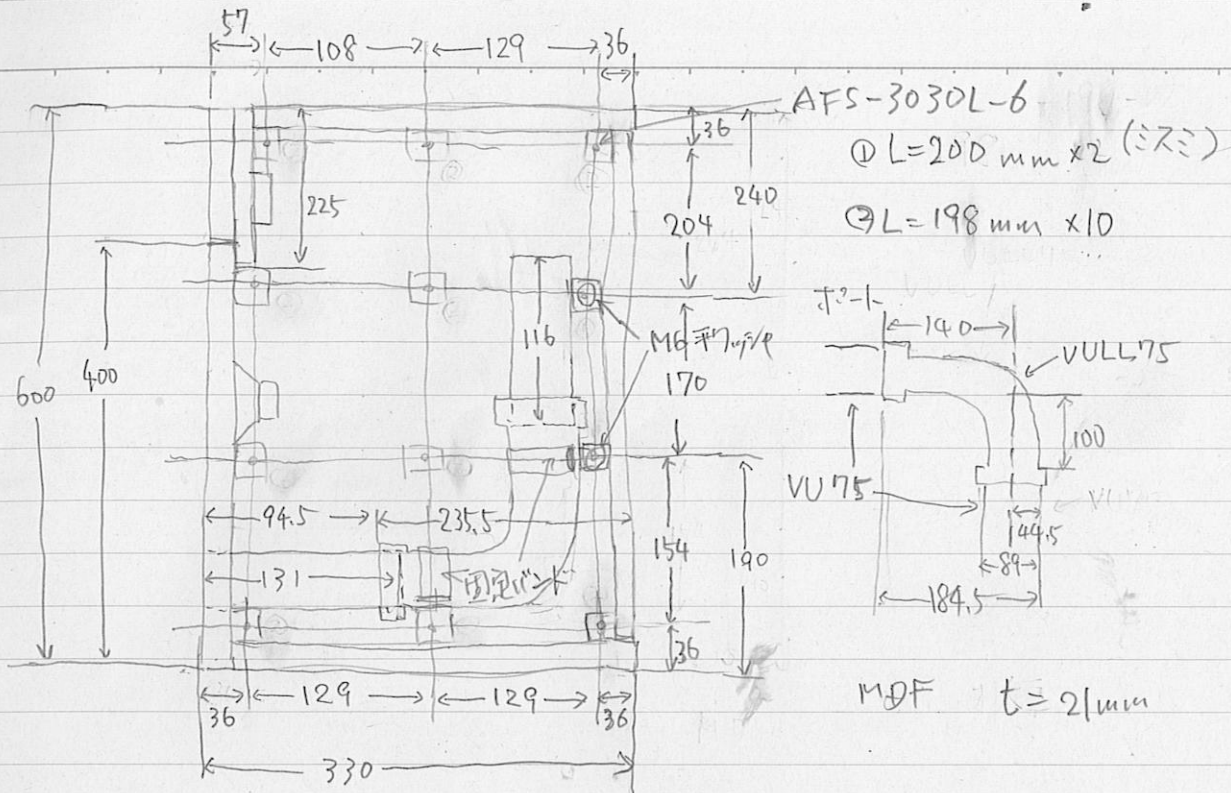 57
108
129
36
AFS-3030L-6
① L=200 mm ×2 (ミスミ)
② L=198 mm ×10
36
240
204
225
600
400
116
M6
170
ポート
140
VULL75
100
VU75
44.5
89
184.5
94.5
235.5
131
固定バンド
154
190
36
36
129
129
36
330
MDF t=21mm